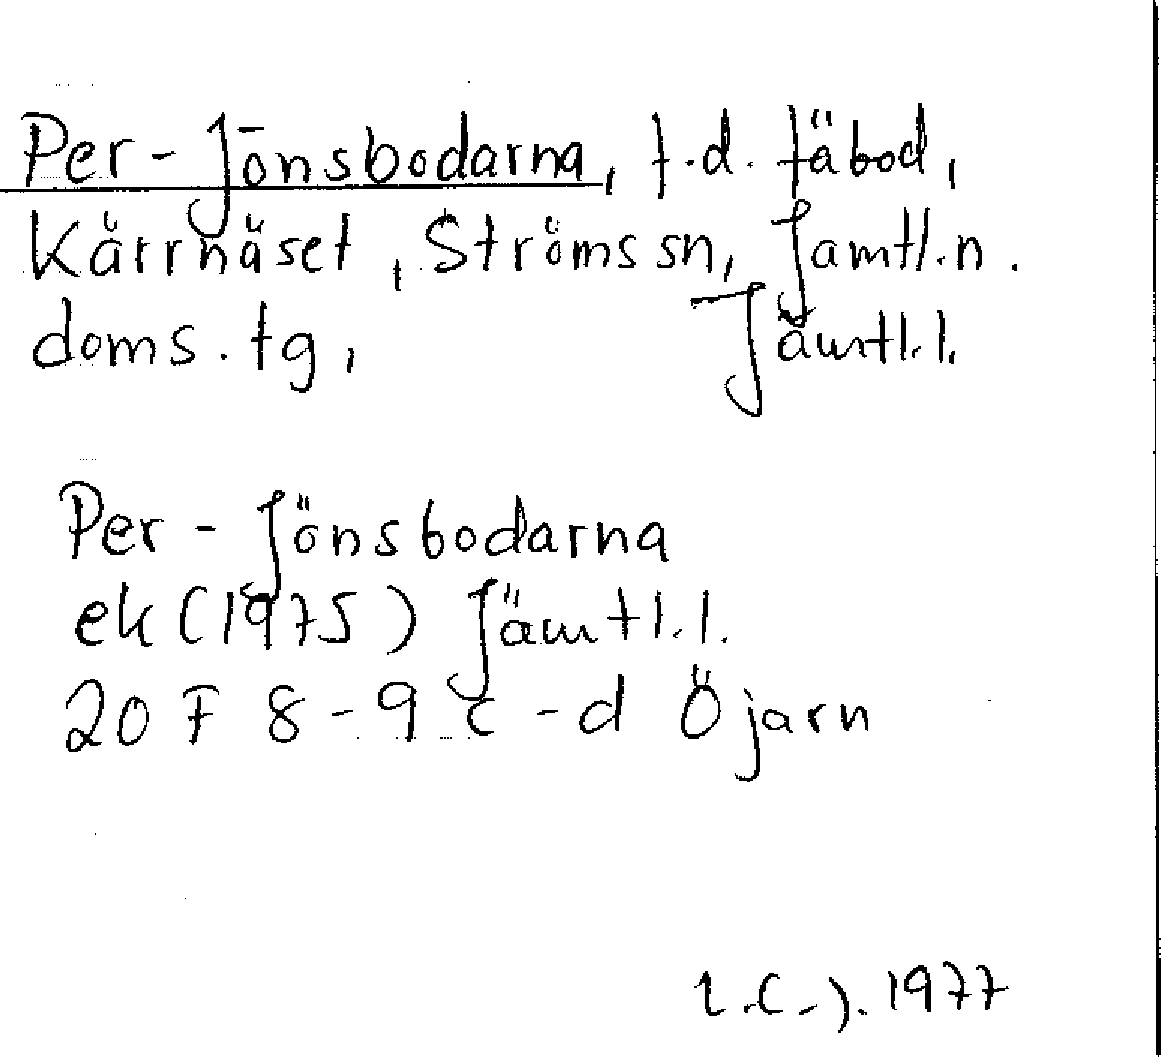 Per-Jönsbodarna, f.d. fäbod,
Kärrnäset, Ströms sn, Jämtl.n.
doms.tg, Jämtl.l.
Per-Jönsbodarna
ek (1975) Jämtl.l.
20 F 8-9 c-d Öjarn
1977